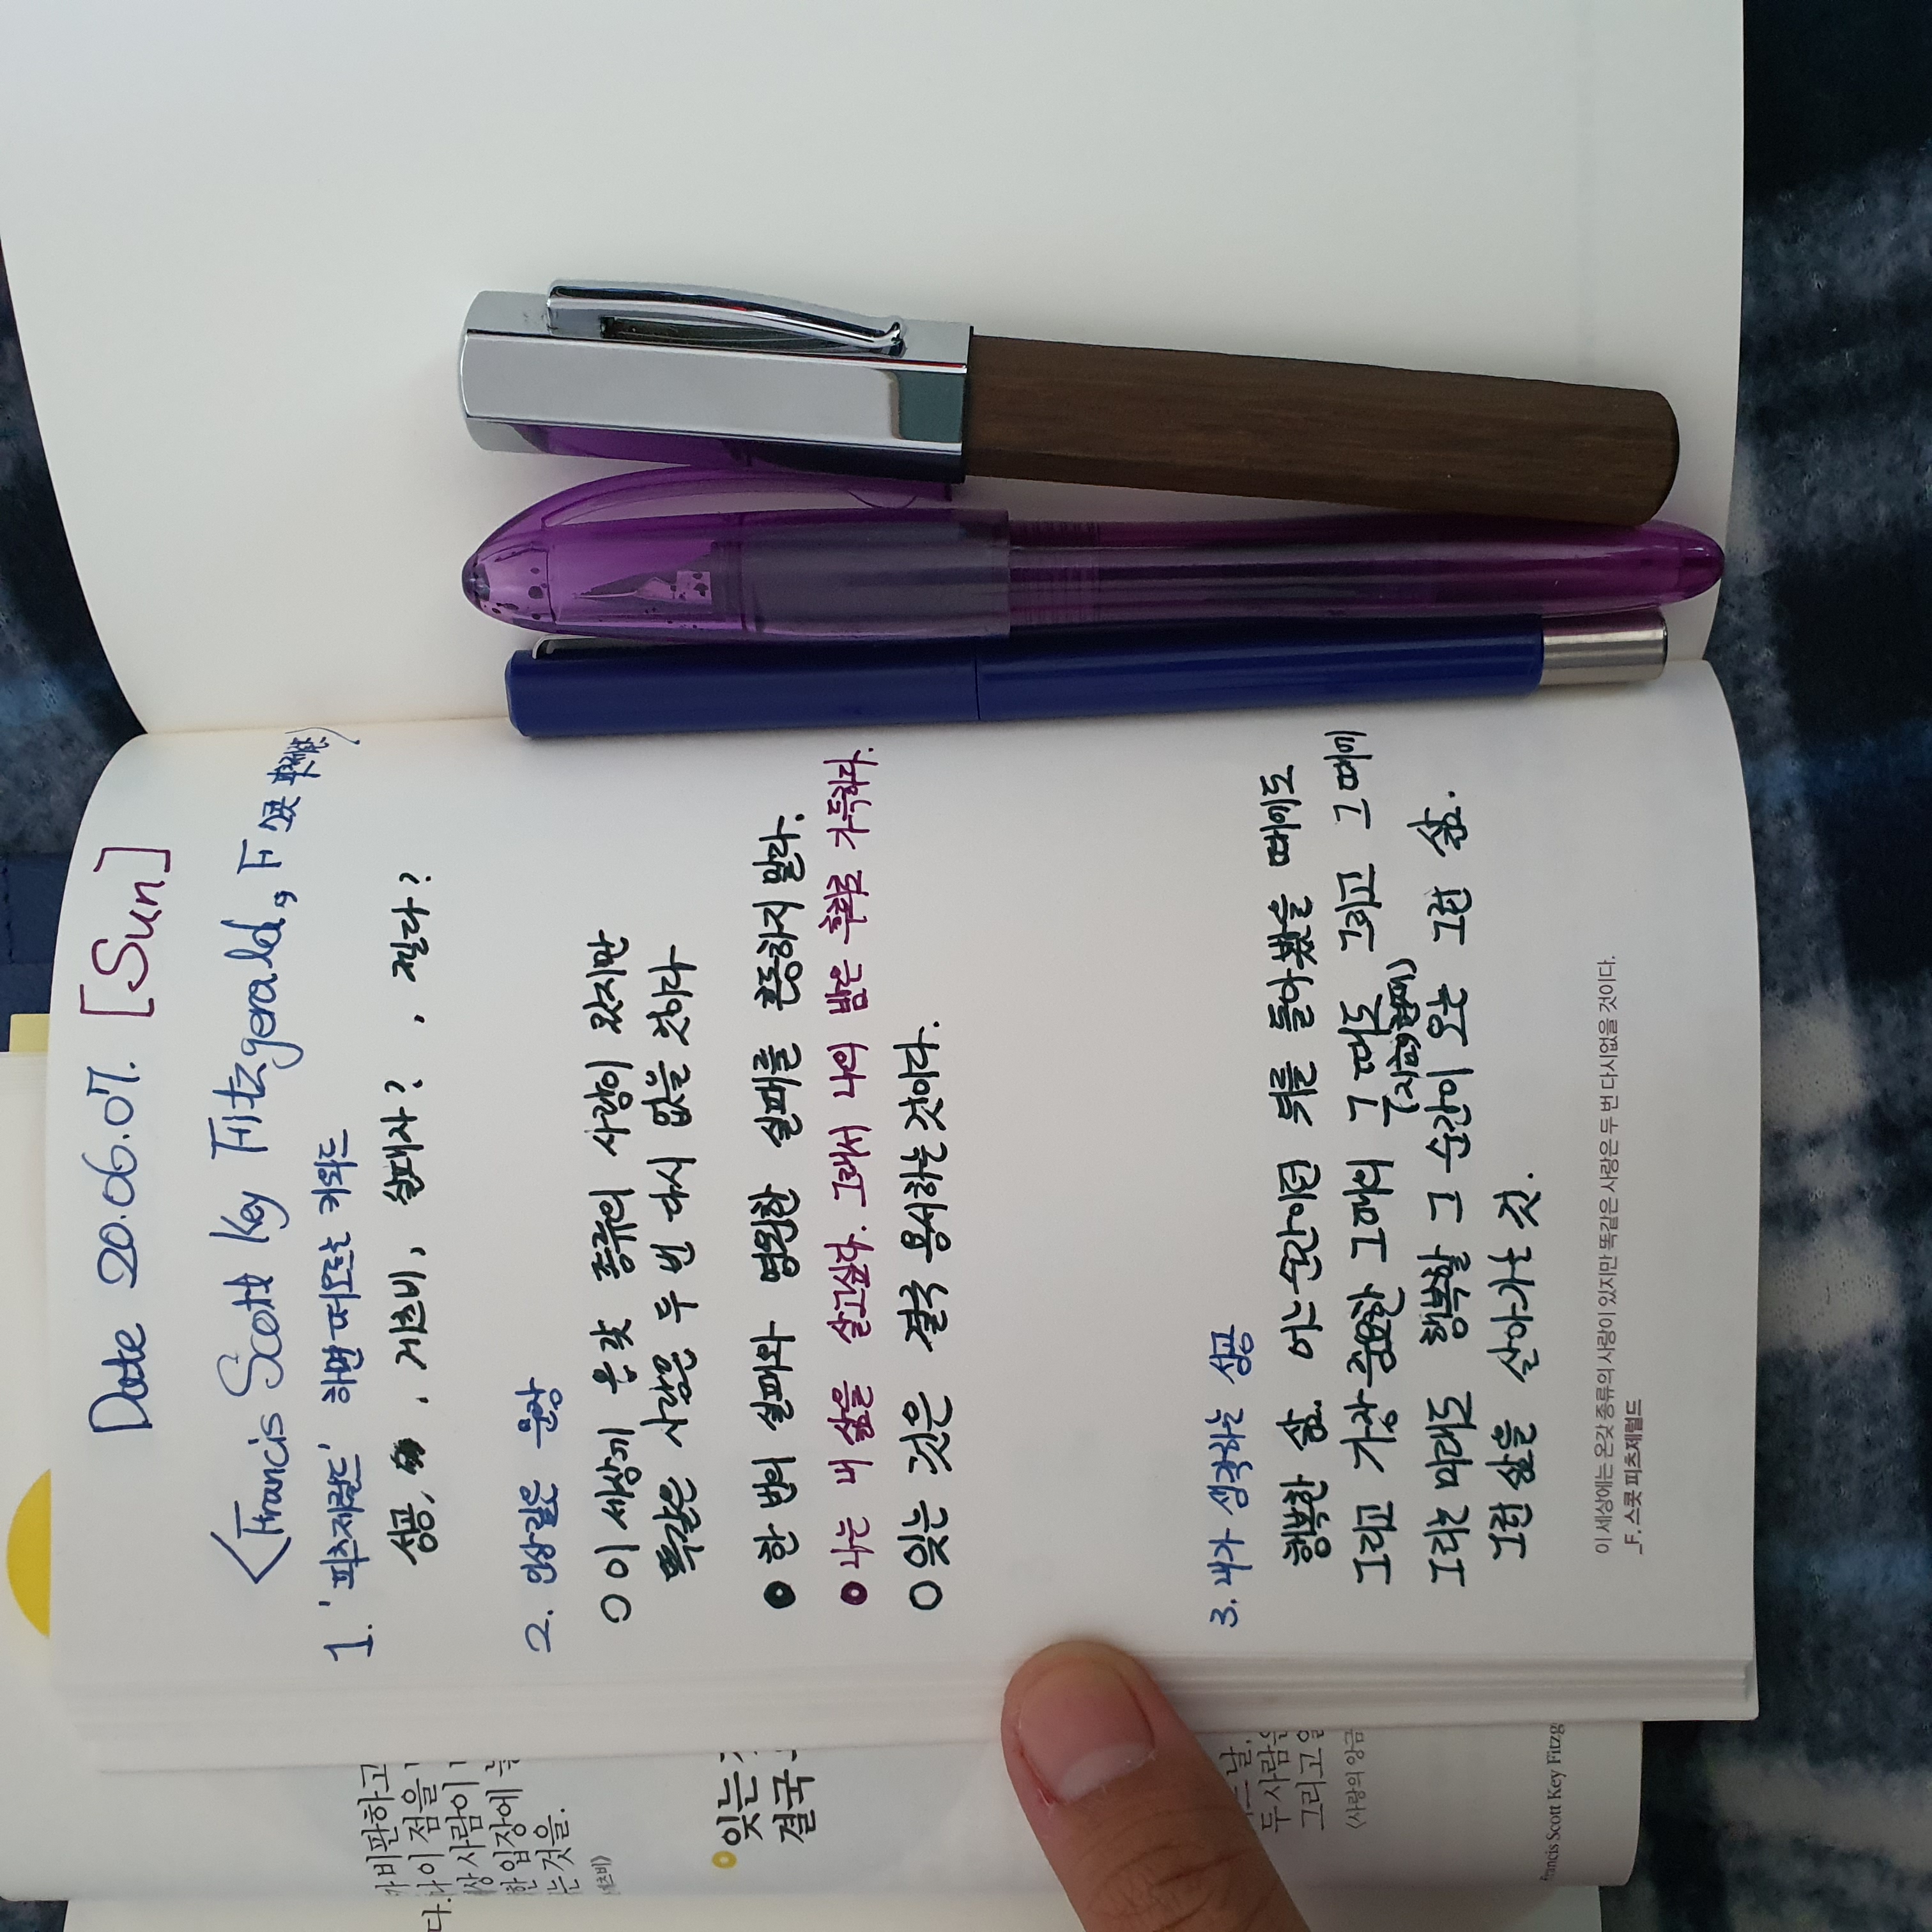 Date 20.06.07. [Sun]
<Francis Scott Key Fitzgerald, F 스콧
1. '피츠제랄드' 하면 떠오르는 키워드
성공, , 게츠비, 실패자? , 찔다?
2. 인상깊은 문장
이 세상에 온갖 종류의 사랑이 있지만
똑같은 사랑은 두 번 다시 없을 것이다
한 번의 실패와 영원한 실패를 혼동하지 말라.
나는 내 삶을 살고싶다. 그래서 나의 밤은 후회로 가득하다.
잊는 것은 결국 용서하는 것이다.
3. 내가 생각하는 성공
행복한 삶. 어느 순간이던 뒤를 돌아봤을 때에도
그리고 가장 중요한 그때의 그 때도 그리고 그 때에
(지금, 현재)
그리는 미래도 행복할 그 순간이 오는 그런 삶.
그런 삶을 살아가는 것.
이 세상에는 온갖 종류의 사랑이 있지만 똑같은 사랑은 두 번 다시 없을 것이다.
_F. 스콧 피츠제럴드
비판하고
이 점을
사람이
한 입장에
는 것을.
잊는
결국
날,
두 사람은
그리고
〈사랑의 앙금
Francis Scott Key Fitzg